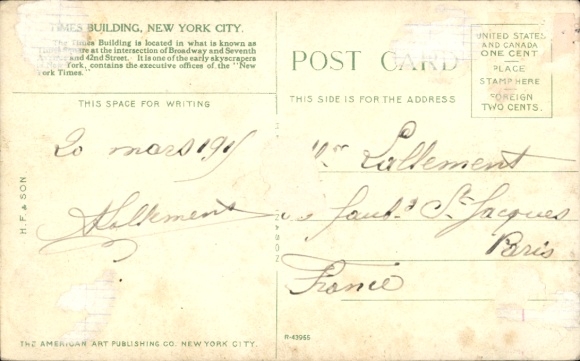 TIMES BUILDING, NEW YORK CITY.
The Times Building is located in what is known as
Times Square at the intersection of Broadway and Seventh
Avenue and 42nd Street. It is one of the early skyscrapers
of New York, contains the executive offices of the "New
York Times."
THIS SPACE FOR WRITING
POST CARD
THIS SIDE IS FOR THE ADDRESS
UNITED STATES
AND CANADA
ONE CENT
PLACE
STAMP HERE
FOREIGN
TWO CENTS.
20 mars 191
Lallement
Lallement
faubg St Jacques
Paris
France
H. F. & SON
THE AMERICAN ART PUBLISHING CO. NEW YORK CITY.
R-43965